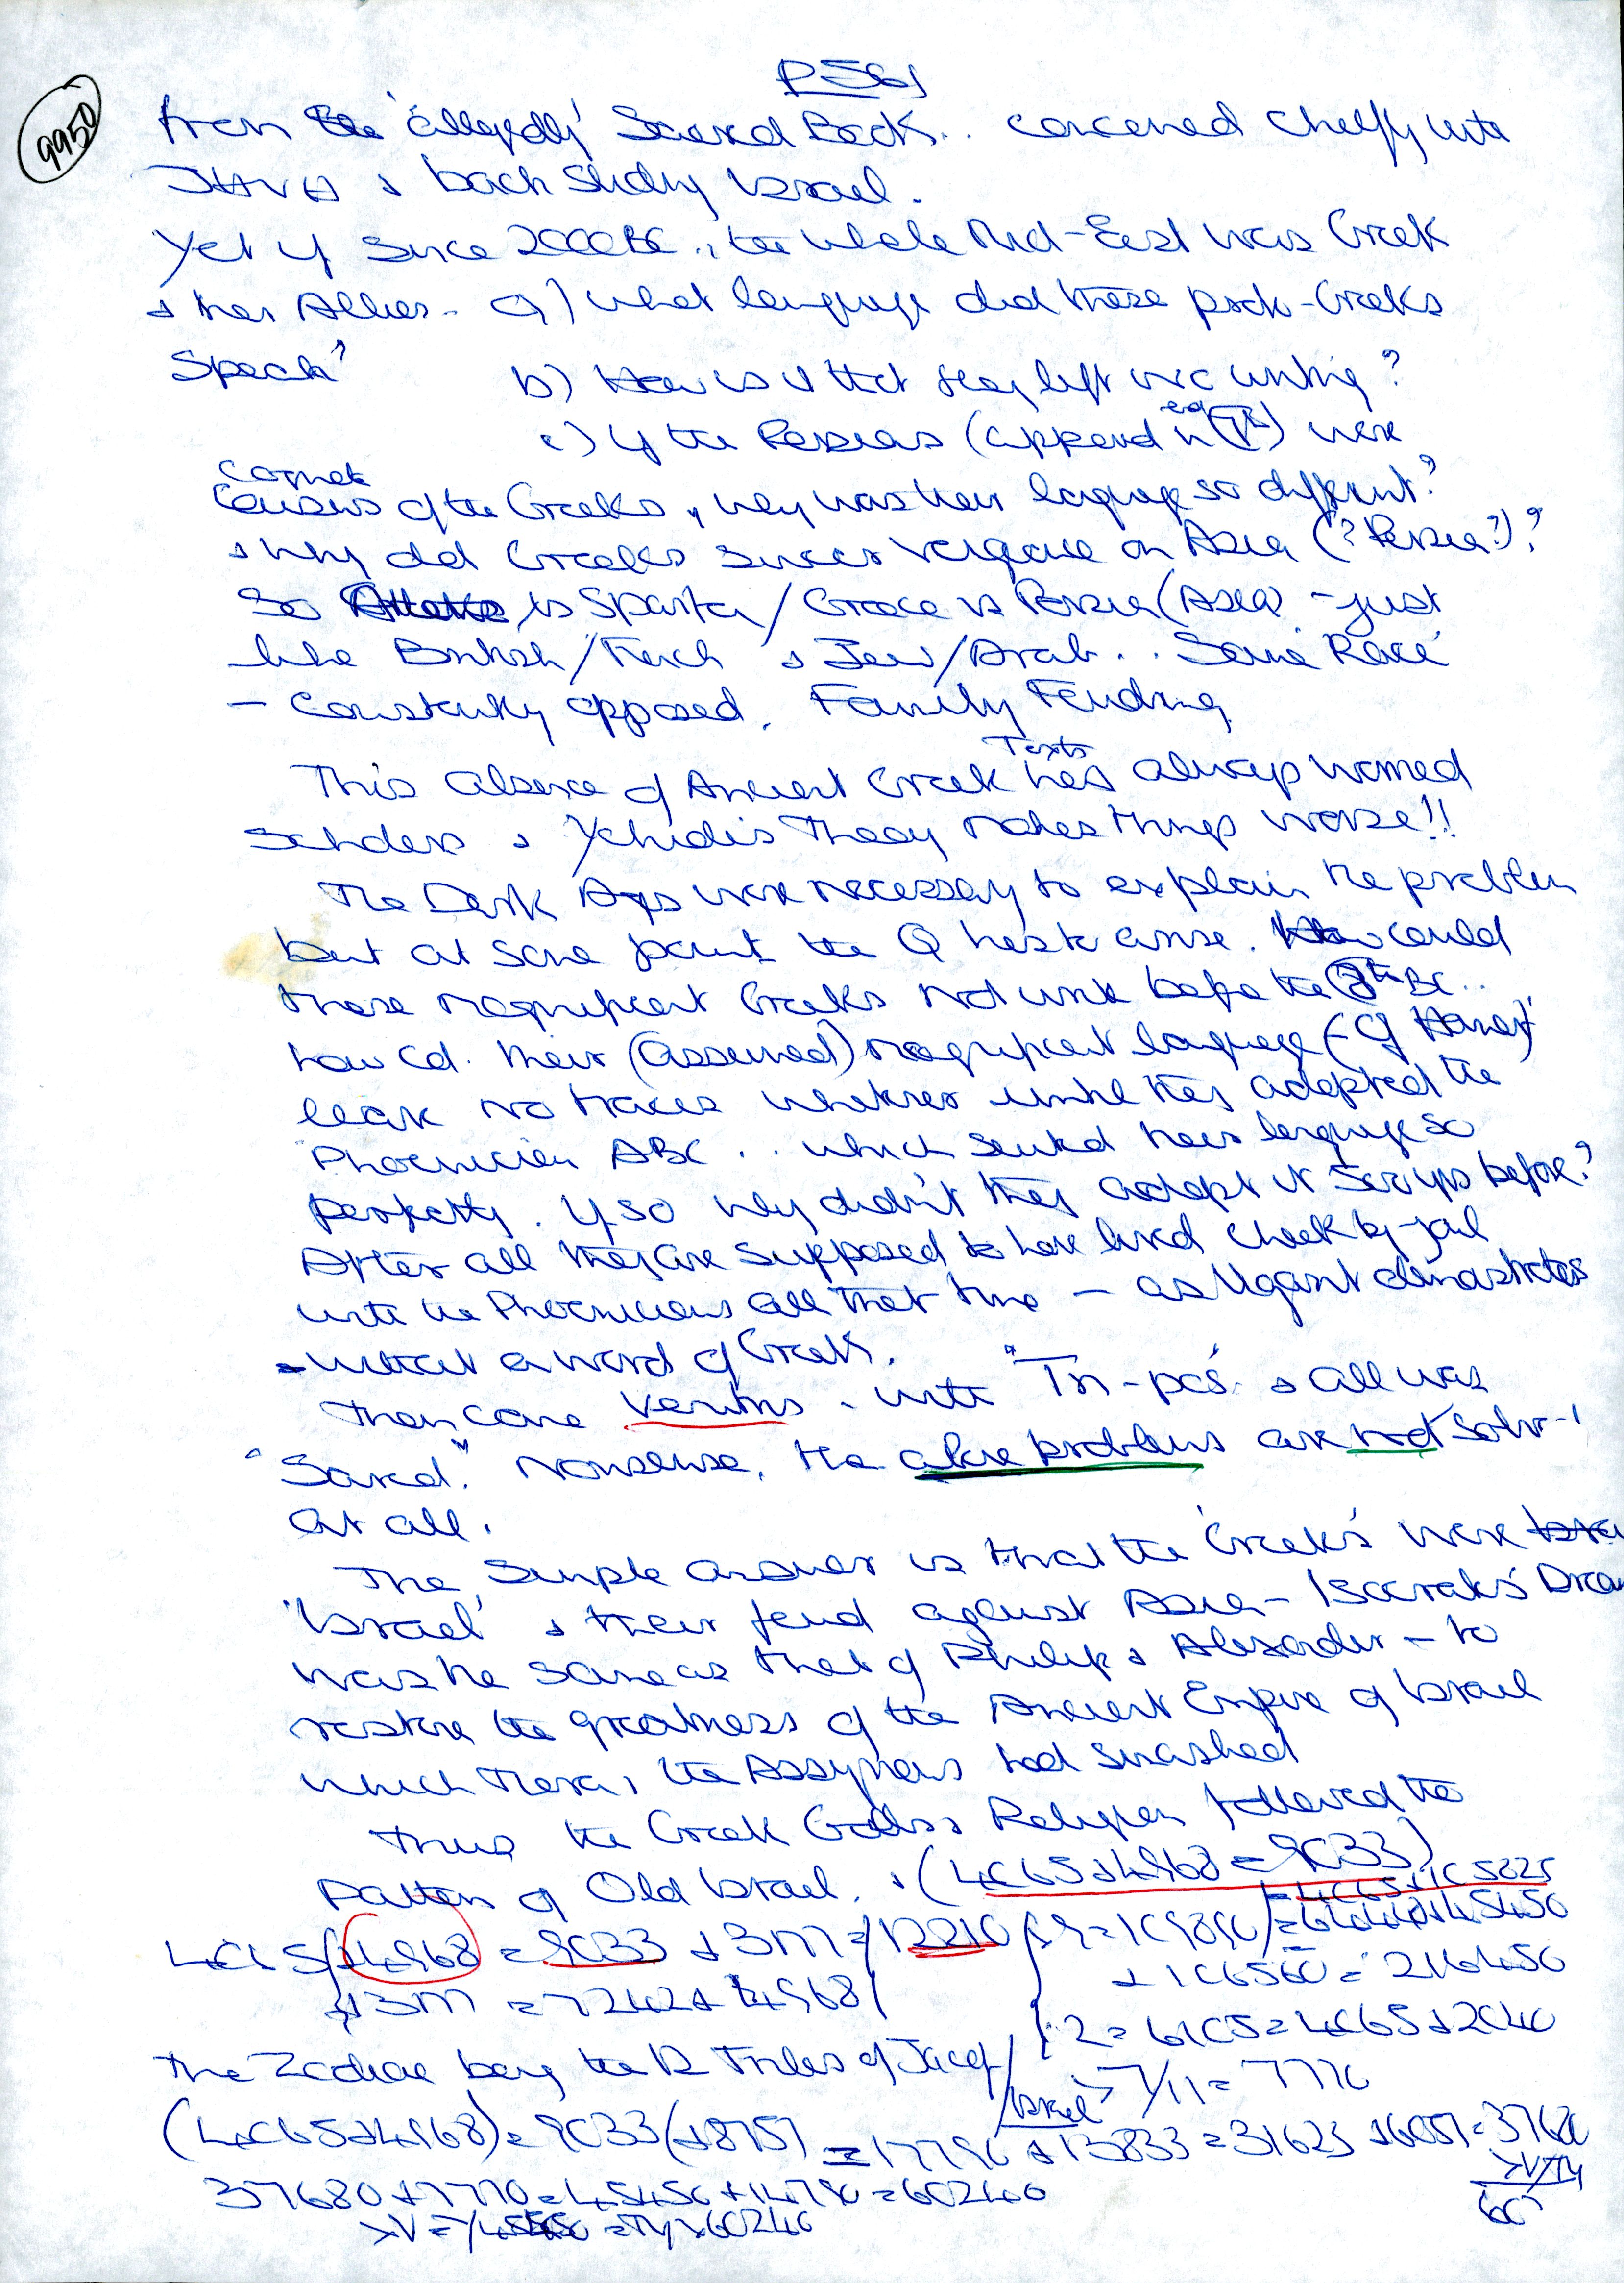 P561
9950
from the 'allegedly' Sacred Book.. concerned chiefly with
JHVH & back sliding Israel.
Yet if since 2000BC, the whole Mid-East was Greek
& her Allies - a) what language did these proto-Greeks
Speak?
b) How is it that they left no writing?
c) If the Persians (append eg in ) were
Cousins of the Greeks, why was their language so different?
& why did Greeks swear vengeance on Asia (? Persia?)?
So is Sparta/Greece vs Persia (Asia) - just
like British/French & Jew/Arab.. 'Same Race'
- Constantly opposed. Family Feuding
This absence of Ancient Greek Texts has always worried
Scholars & Yehudi's Theory makes things worse!!
The Dark Ages were necessary to explain the problem
but at some point the Q has to arise. How could
those magnificent Greeks not write before the 8th BC..
how cd. their (assumed) magnificent language (- cf Homer)
leave no traces whatever until they adopted the
Phoenician ABC .. which suited their language so
perfectly. If so why didn't they adopt it before?
After all they are supposed to have lived cheek by-jowl
with the Phoenicians all that time - as Ugarit demonstrates
- without a word of Greek.
Then came Ventris. with "Tri-pos" & all was
"Saved." Nonsense, the above problems are not
at all.
The Simple answer is that the 'Greeks' were
'Israel' & their feud against Asia - Isocrates'
was the same as that of Philip & Alexander - to
restore the greatness of the Ancient Empire of Israel
which the Assyrians had smashed
Thus the Greek Religion followed the
Pattern of Old Israel. & (4065+4968=9033)
4065+4968 = 9033 + 3M = 12210
+3M = 7242 + 4968
+ 106560 = 216450
2 = 6105 = 4065+2040
The Zodiac being the 12 Tribes of Jacob/
Israel > 7/11 = 7770
(4065+4968) = 9033 (+8757 = 17790 + 13833 = 31623 +6057 = 37680
37680+7770=45450+14790=60240